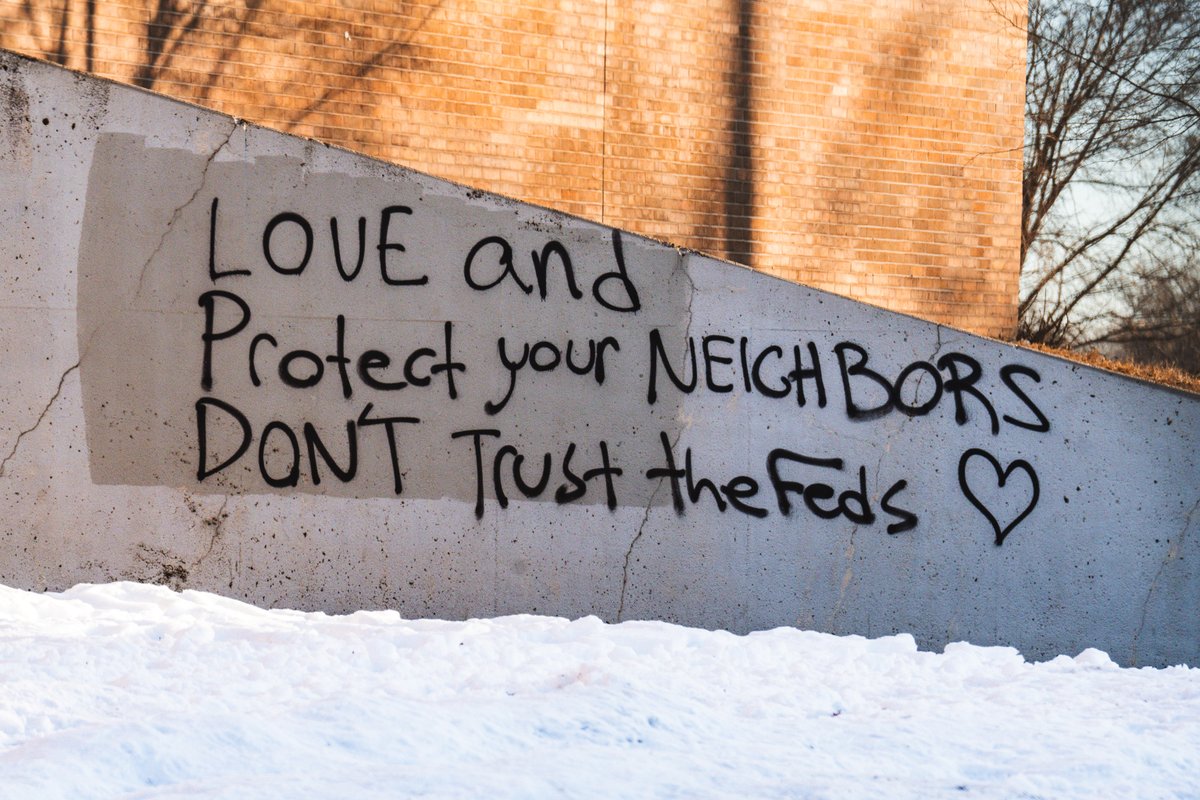 LOVE and
Protect your NEIGHBORS
DON'T Trust the Feds ♡